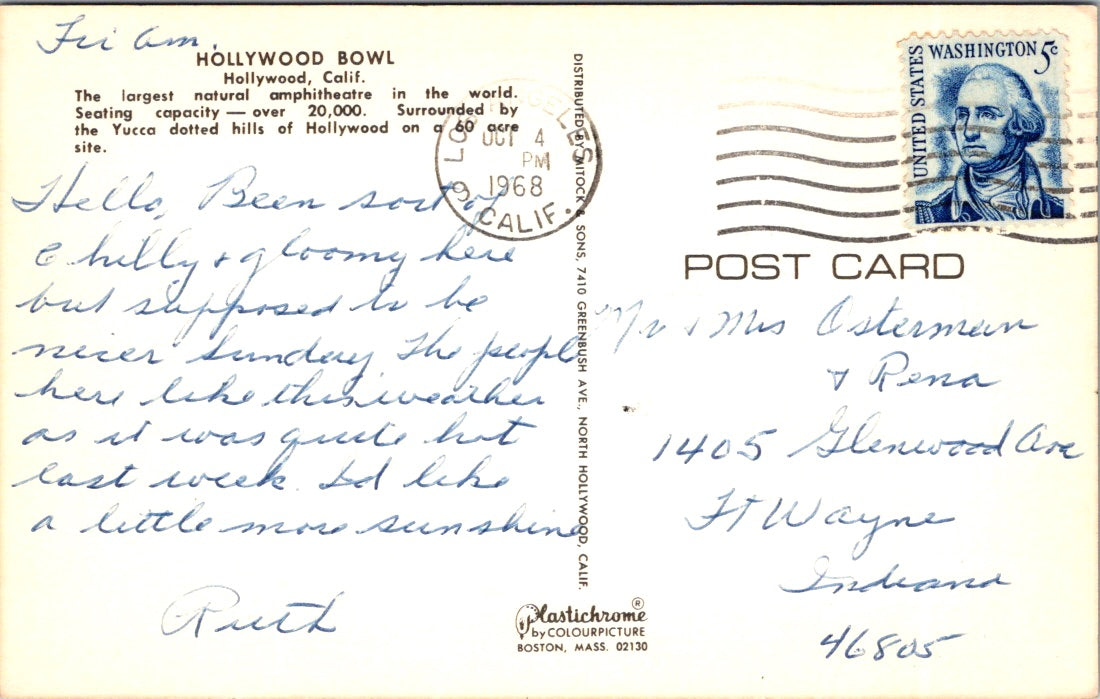 Fri am.
HOLLYWOOD BOWL
Hollywood, Calif.
The largest natural amphitheatre in the world.
Seating capacity — over 20,000. Surrounded by
the Yucca dotted hills of Hollywood on a 60 acre
site.
Hello, Been sort of
chilly & gloomy here
but supposed to be
nicer Sunday The people
here like this weather
as it was quite hot
last week. I'd like
a little more sunshine
Ruth
DISTRIBUTED BY MITOCK & SONS, 7410 GREENBUSH AVE., NORTH HOLLYWOOD, CALIF.
Plastichrome ®
by COLOURPICTURE
BOSTON, MASS. 02130
LOS ANGELES
OCT 4
PM
1968
CALIF.
UNITED STATES
WASHINGTON 5c
POST CARD
Mr & Mrs Osterman
& Rena
1405 Glenwood Ave
Ft Wayne
Indiana
46805